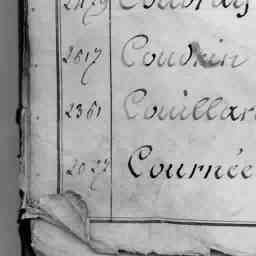 2617 Coudrin
2361 Couillar
2027 Cournée